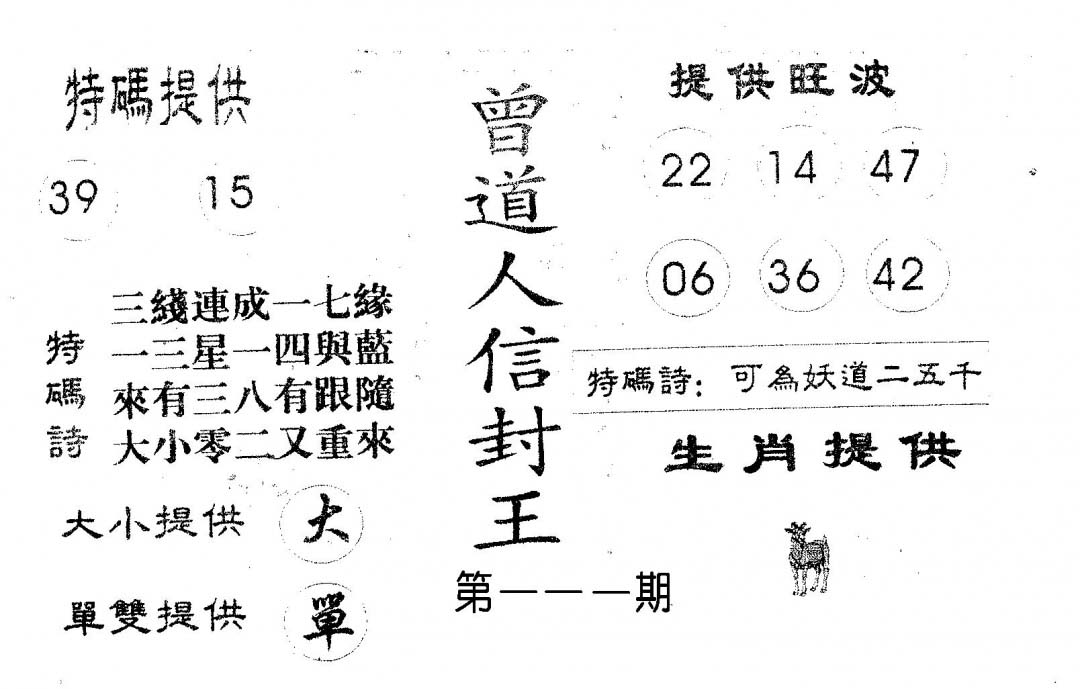 特碼提供
39 15
特碼詩
三綫連成一七緣
一三星一四與藍
來有三八有跟隨
大小零二又重來
大小提供 大
單雙提供 單
曾道人信封王
第一一一期
提供旺波
22 14 47
06 36 42
特碼詩：可為妖道二五千
生肖提供